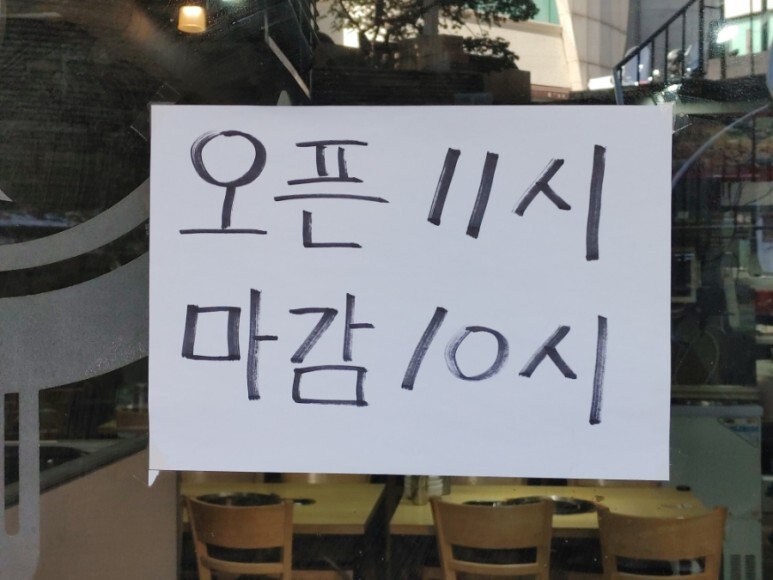 오픈 11시
마감 10시